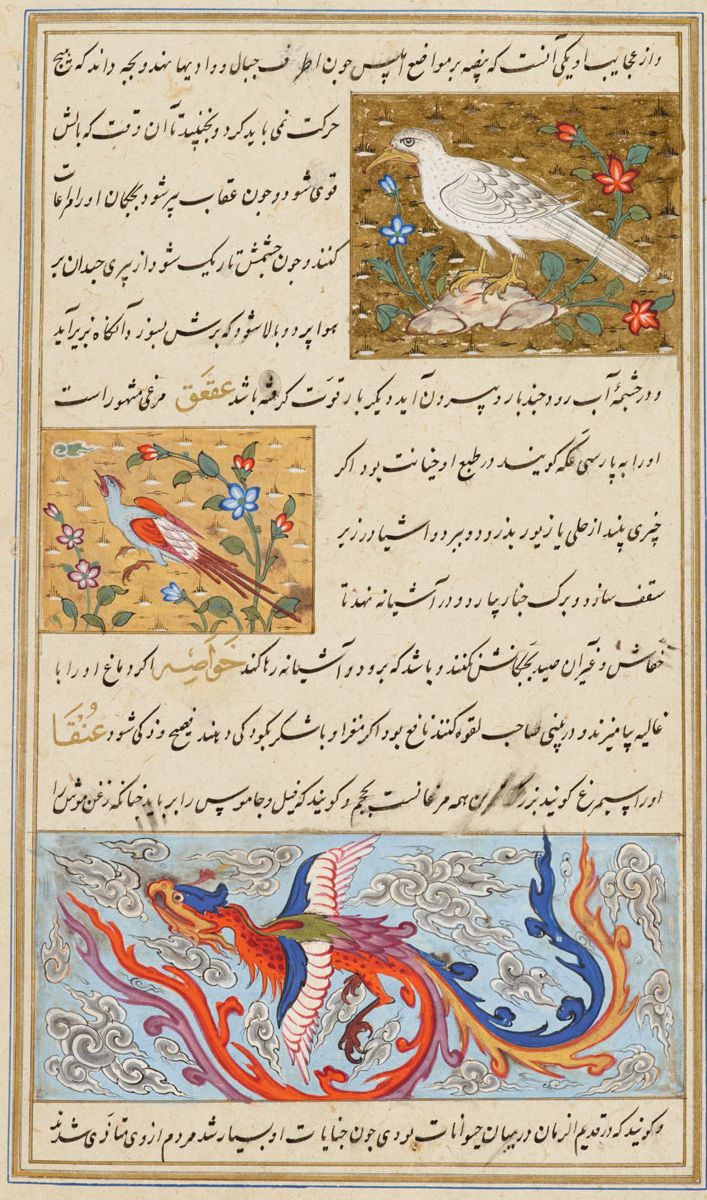 و از عجایب او یکی آنست که بیضه بر مواضع املس چون اطراف جبال و وادیها نهد و بچه داند که هیچ
حرکت نمی باید کرد و نجنبید تا آن وقت که بالش
قوی شود و چون عقاب پیر شود بچگان او را مراعات
کنند و چون چشمش تاریک شود از پیری چندان بر
هوا پرد و بالا شود که پرش بسوزد آنگاه بزیر آید
و در چشمهٔ آب رود چند بار و بیرون آید دیگر بار قوت گرفته باشد عقعق مرغی مشهور است
او را به پارسی عکه گویند در طبع او خیانت بود اگر
چیزی بیند از حلی یا زیور بدزدد و ببرد و آشیا در زیر
سقف سازد و برک چنار بیارد و در آشیانه نهد تا
خفاش و غیر آن صید بچگانش نکنند و باشد که برود و آشیانه رها کند خواصه اگر دماغ او را با
غالیه بیامیزند و در بینی صاحب لقوه کنند نافع بود اگر مغز او با شکر بکودکی دهند فصیح و ذکی شود عنقا
او را سیمرغ گویند بزرگ ترین همه مرغانست بحجم و گویند که فیل و جاموس را بر باید چنانکه زغن موش را
و گویند که در قدیم الزمان در میان حیوانات بودی چون جنایات او بسیار شد مردم از وی متاذی شدند